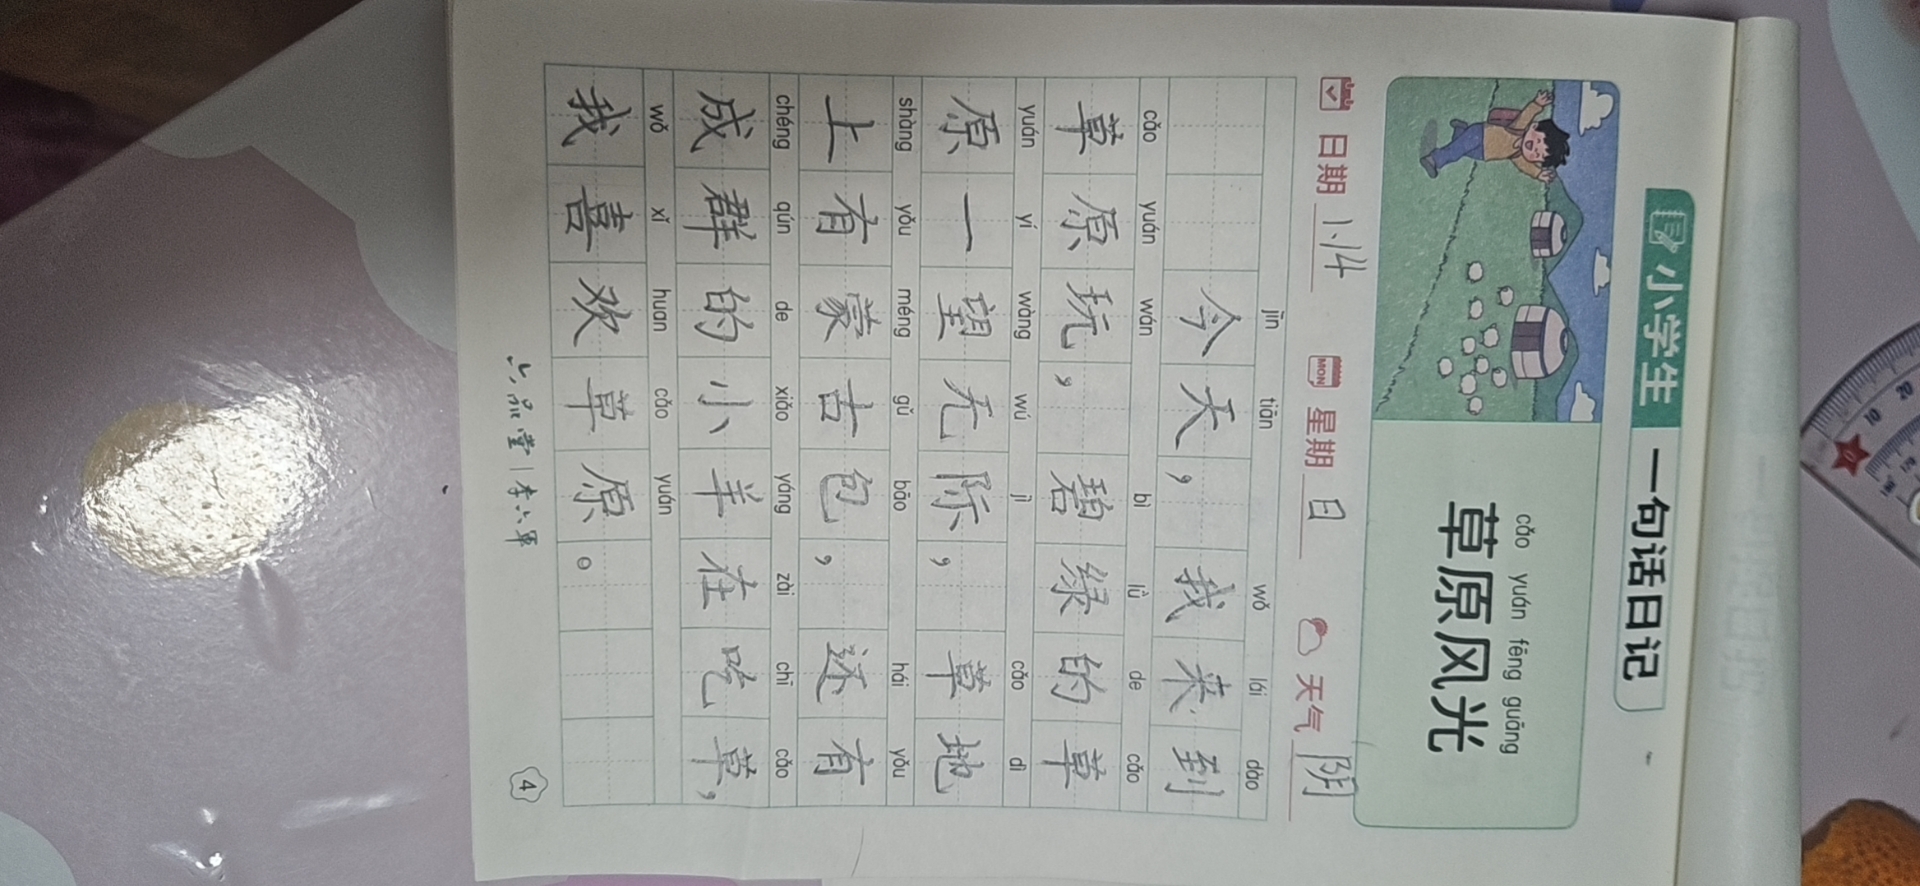 小学生 一句话日记
cǎo yuán fēng guāng
草原风光
日期 1.14 星期 日 天气 阴
MON
jīn tiān wǒ lái dào
今天，我来到
cǎo yuán wán bì lǜ de cǎo
草原玩，碧绿的草
yuán yí wàng wú jì cǎo dì
原一望无际，草地
shàng yǒu méng gǔ bāo hái yǒu
上有蒙古包，还有
chéng qún de xiǎo yáng zài chī cǎo
成群的小羊在吃草，
wǒ xǐ huan cǎo yuán
我喜欢草原。
六品堂|李六军
4